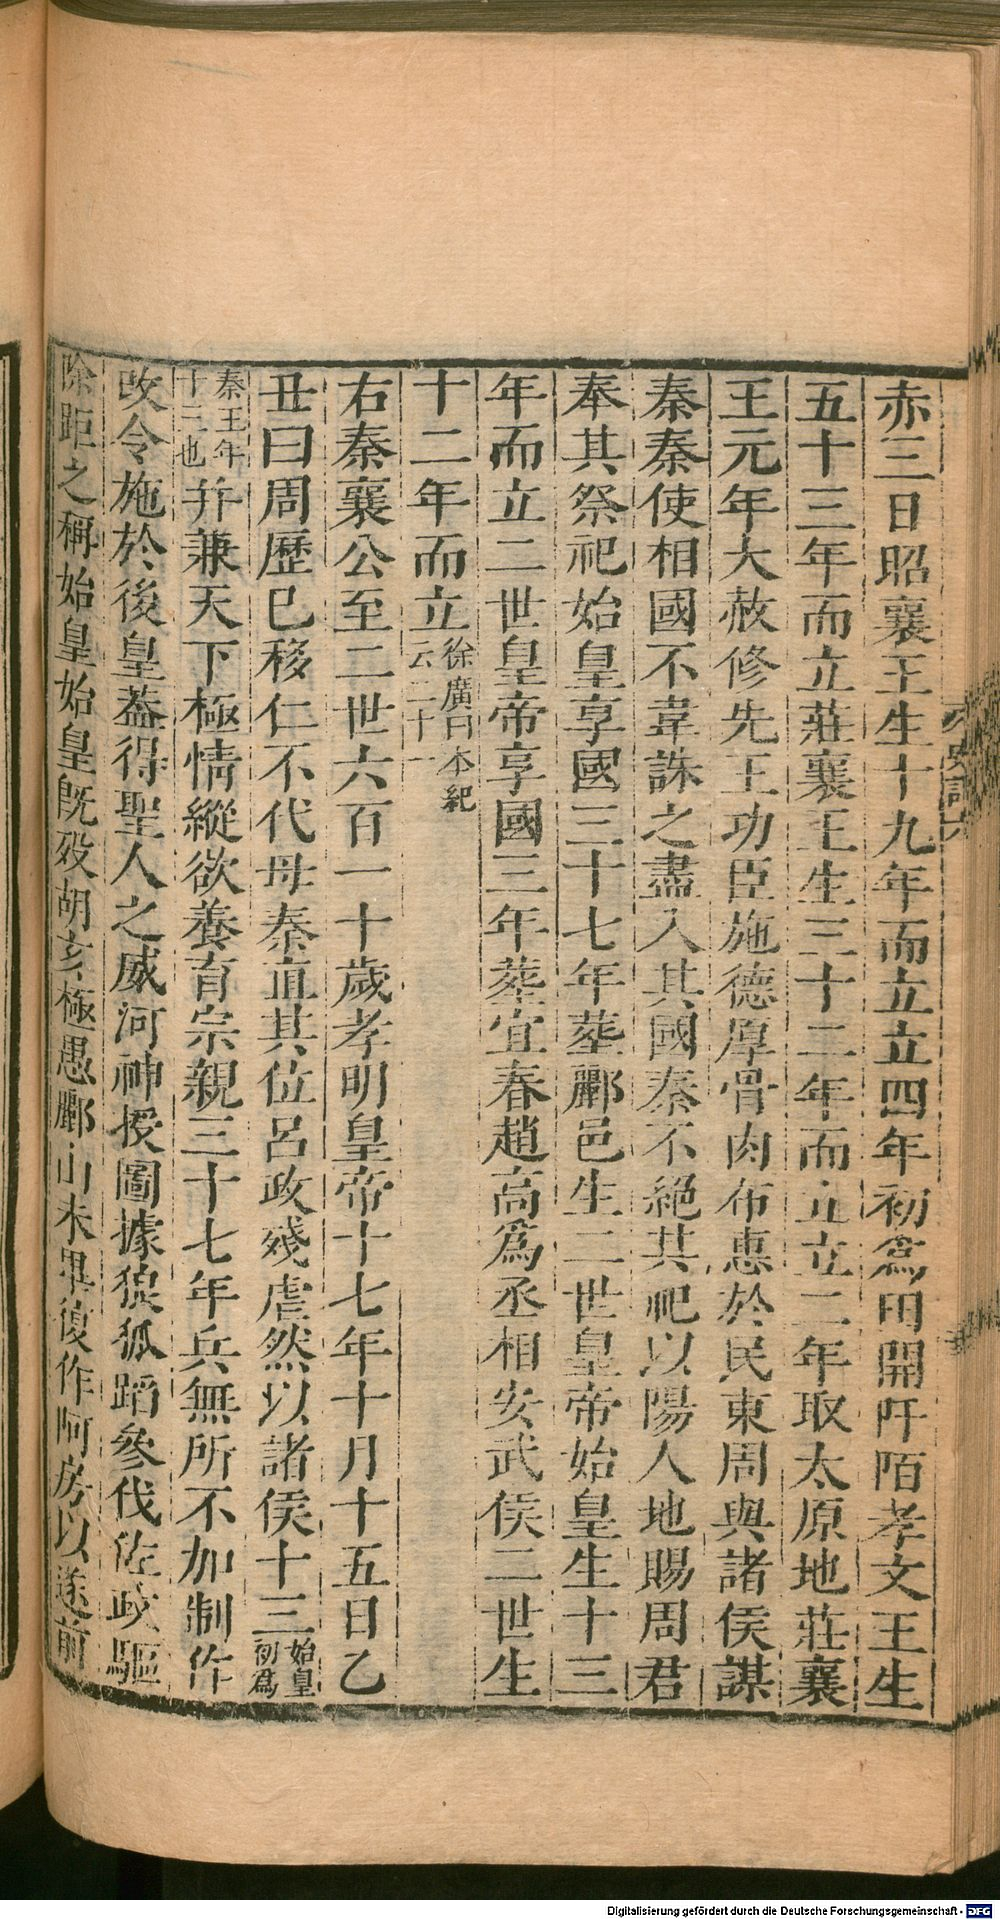 赤三日昭襄王生十九年而立立四年初爲田開阡陌孝文王生
五十三年而立莊襄王生三十二年而立立二年取太原地莊襄
王元年大赦修先王功臣施德厚骨肉布惠於民東周與諸侯謀
秦秦使相國不韋誅之盡入其國秦不絕其祀以陽人地賜周君
奉其祭祀始皇享國三十七年葬酈邑生二世皇帝始皇生十三
年而立二世皇帝享國三年葬宜春趙高爲丞相安武侯二世生
十二年而立徐廣曰本紀云二十一
右秦襄公至二世六百一十歲孝明皇帝十七年十月十五日乙
丑曰周歷已移仁不代母秦直其位呂政殘虐然以諸侯十三始皇初爲
秦王年十三也并兼天下極情縱欲養育宗親三十七年兵無所不加制作
政令施於後皇蓋得聖人之威河神授圖據狼狐蹈參伐佐政驅
除距之稱始皇始皇旣歿胡亥極愚酈山未畢復作阿房以遂前
史記六
Digitalisierung gefördert durch die Deutsche Forschungsgemeinschaft - DFG